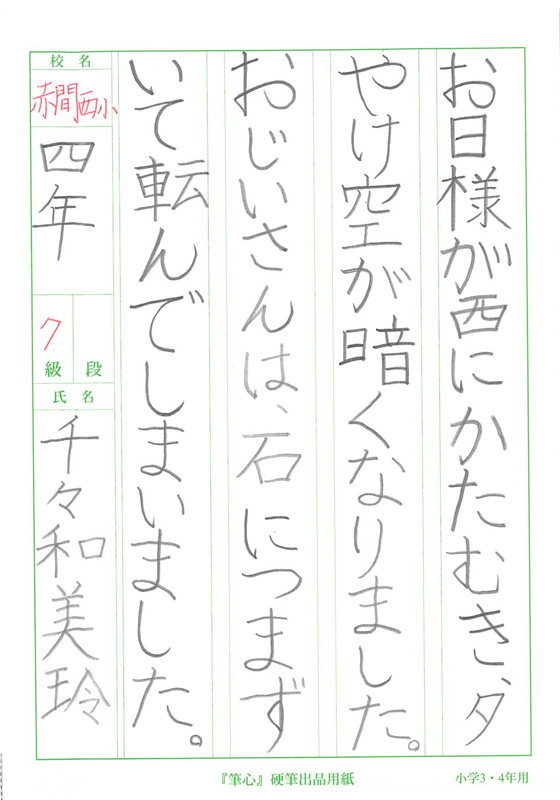 お日様が西にかたむき、夕
やけ空が暗くなりました。
おじいさんは、石につまず
いて転んでしまいました。
校名
赤間西小
四年
段
級
ク
氏名
千々和美玲
『筆心』硬筆出品用紙
小学3・4年用